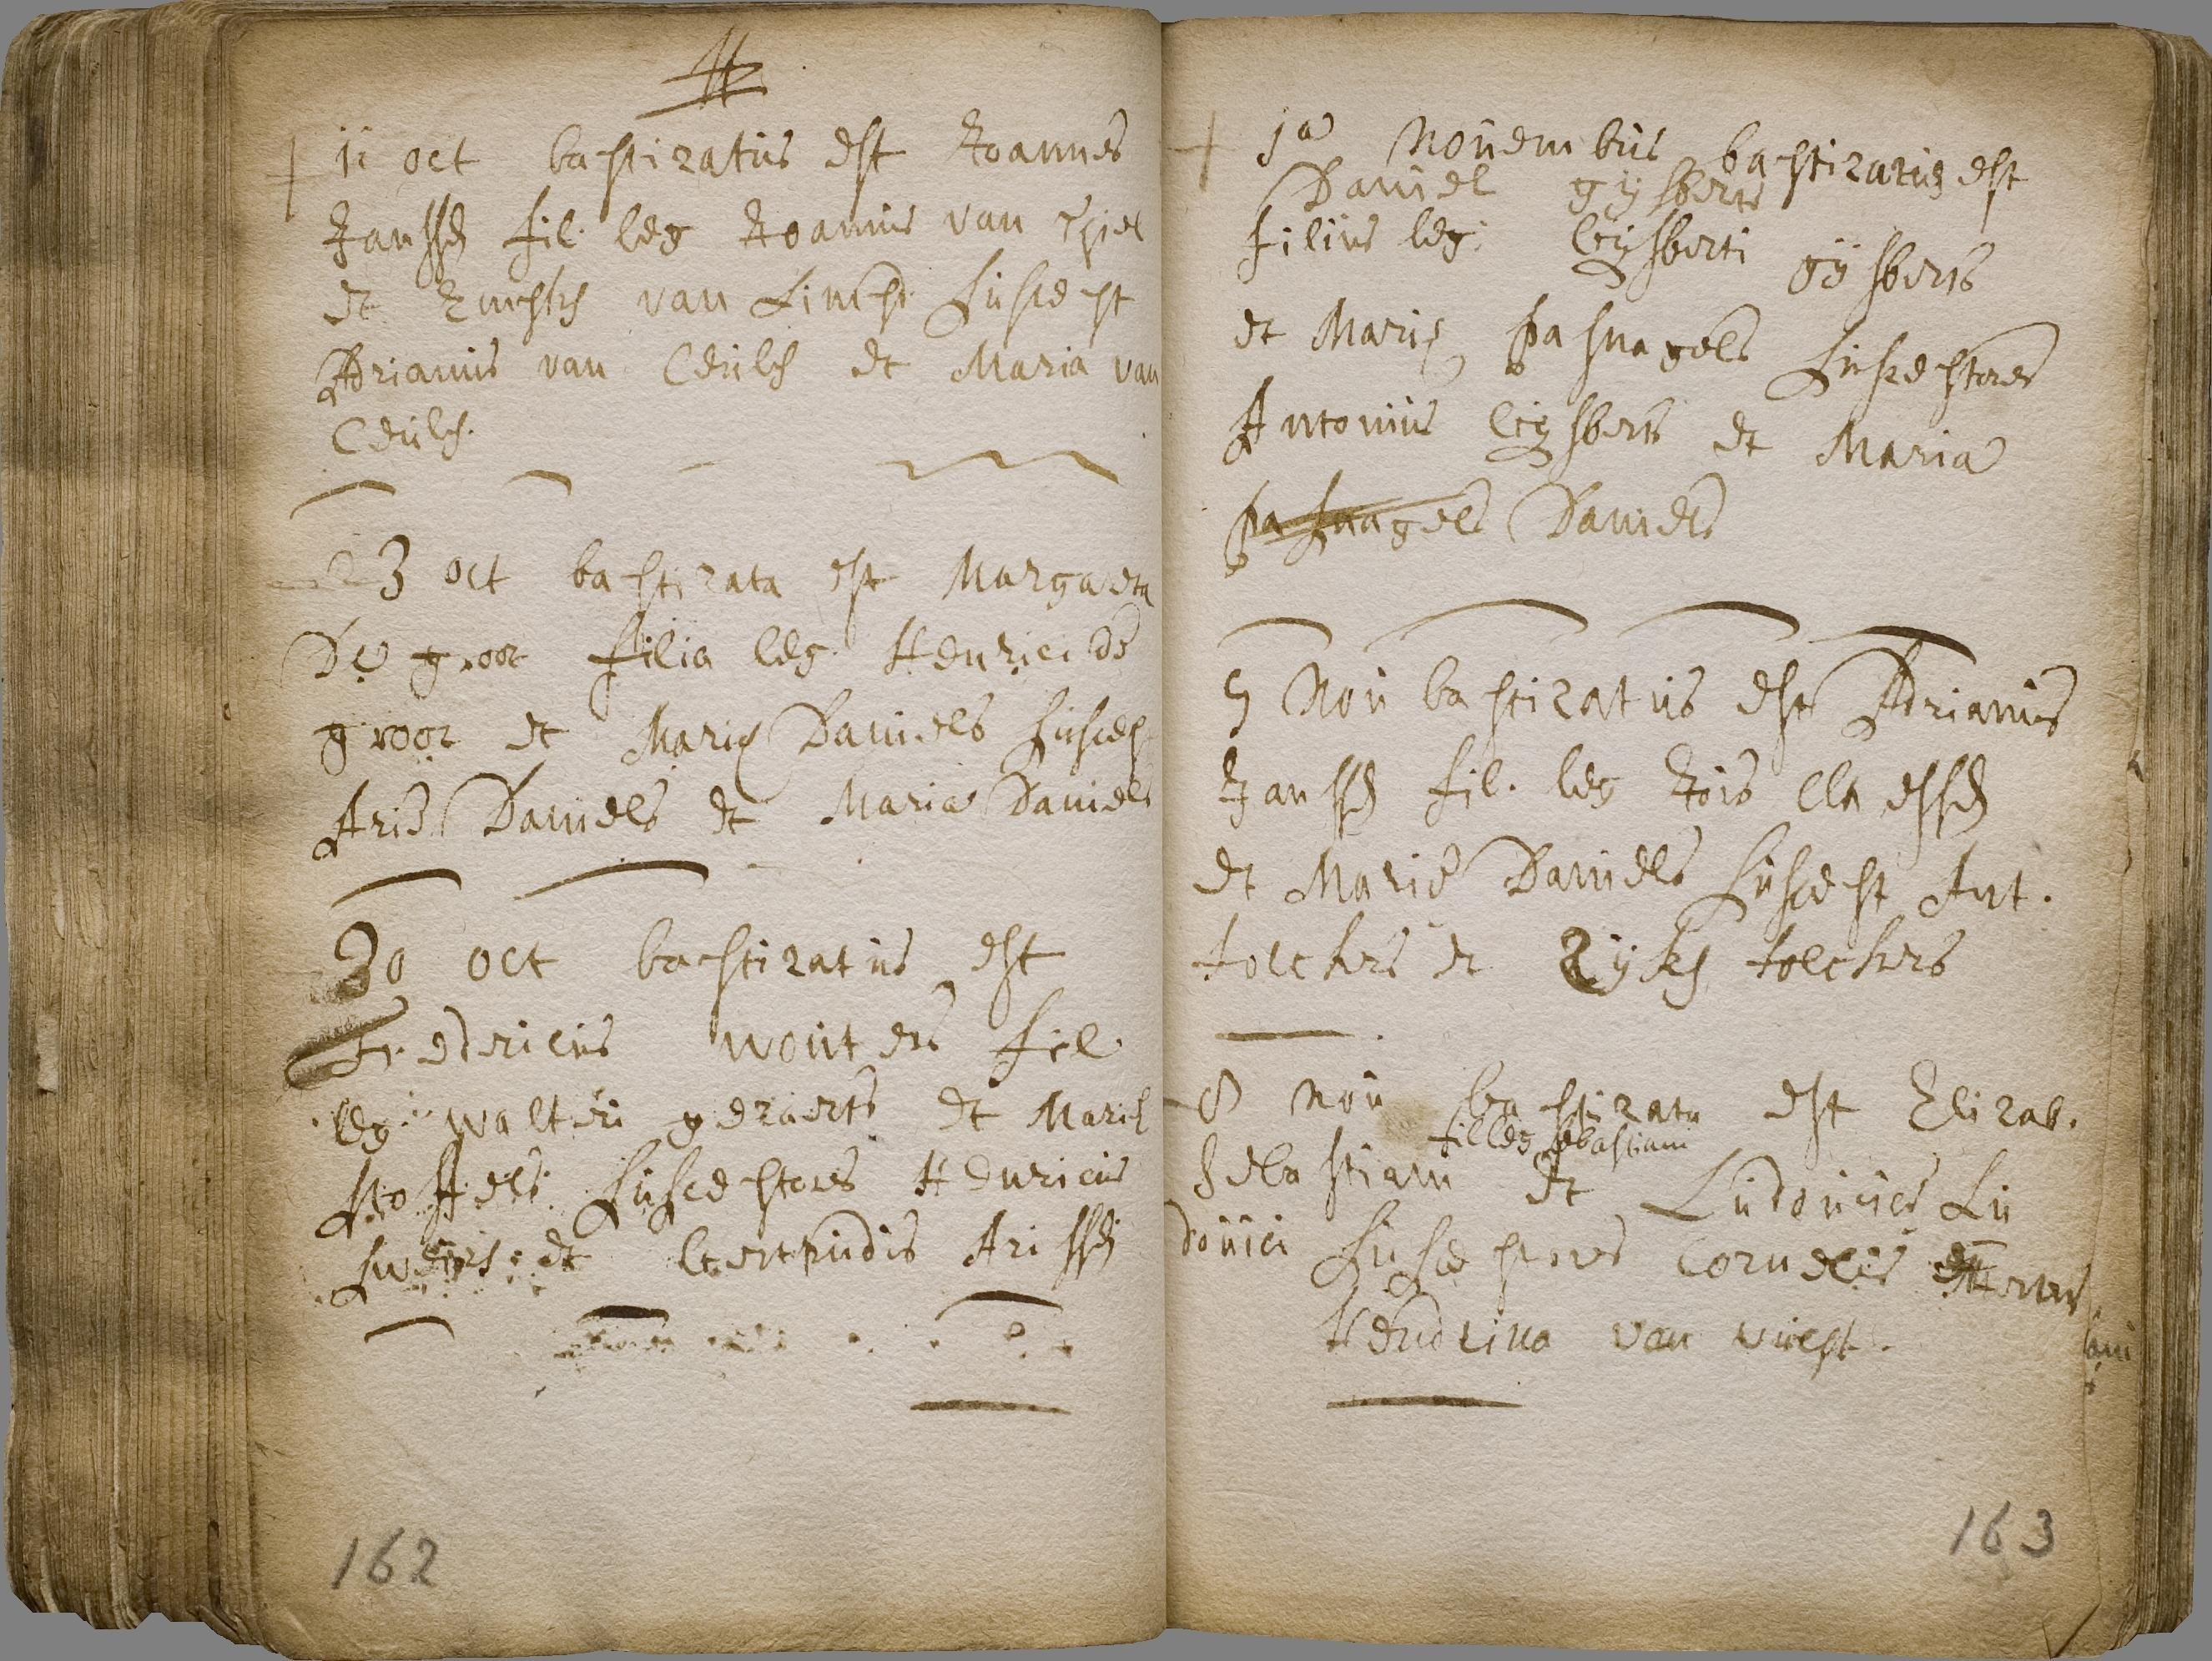 11 oct baptizatus est Joannes
Janssen fil. leg Joannis van
et van Lincht suscept
Adrianus van Ceulen et Maria van
Ceulen.
23 oct baptizata est Margareta
De groot filia leg. Henrici de
groot et Mariæ Daniels suscep
Arie Daniels et Maria Daniels
30 oct baptizatus est
Fredericus wouters fil
leg. walteri geraerts et Mariæ
stoffels. susceptores Henricus
sweers. et Gertrudis Arissen
162
1a Novembris baptizatus est
Daniel gijsberts
filius leg: Gijsberti gijsberts
et Mariæ pasnagels susceptores
Antonius Gijsberts et Maria
pasnagels Daniels
5 Nov baptizatus est Adrianus
Janssen fil. leg Jois Claessen
et Mariæ Daniels suscept Ant.
folckers et Rijken folckers
8 nov baptizata est Elizab.
fil leg sebastiani
sebastiani et Ludovicæ Lu
dovici susceptores Cornelis
Hendrina van vucht.
163